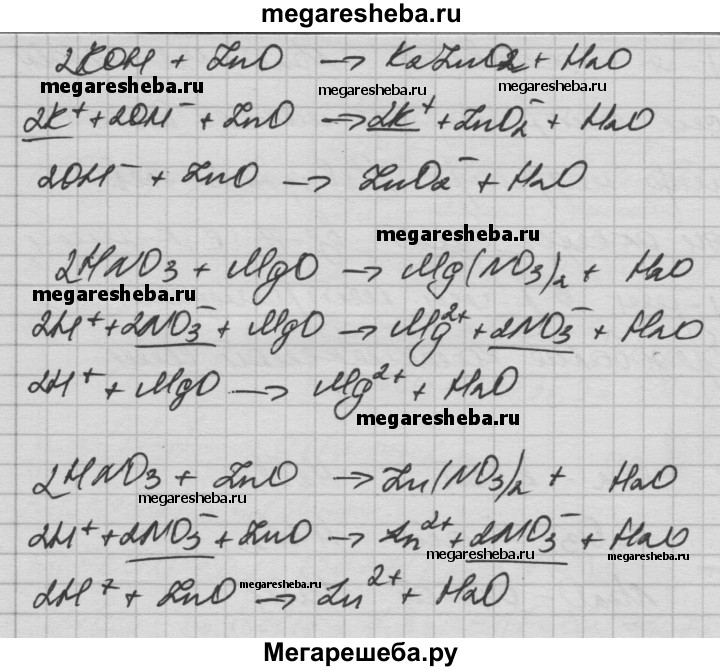 megaresheba.ru
2KOH + ZnO → K₂ZnO₂ + H₂O
megaresheba.ru megaresheba.ru megaresheba.ru
2K⁺ + 2OH⁻ + ZnO → 2K⁺ + ZnO₂⁻ + H₂O
2OH⁻ + ZnO → ZnO₂⁻ + H₂O
megaresheba.ru
2HNO₃ + MgO → Mg(NO₃)₂ + H₂O
megaresheba.ru
2H⁺ + 2NO₃⁻ + MgO → Mg²⁺ + 2NO₃⁻ + H₂O
2H⁺ + MgO → Mg²⁺ + H₂O
megaresheba.ru
2HNO₃ + ZnO → Zn(NO₃)₂ + H₂O
megaresheba.ru
2H⁺ + 2NO₃⁻ + ZnO → Zn²⁺ + 2NO₃⁻ + H₂O
megaresheba.ru megaresheba.ru
2H⁺ + ZnO → Zn²⁺ + H₂O
megaresheba.ru
Мегарешеба.ру